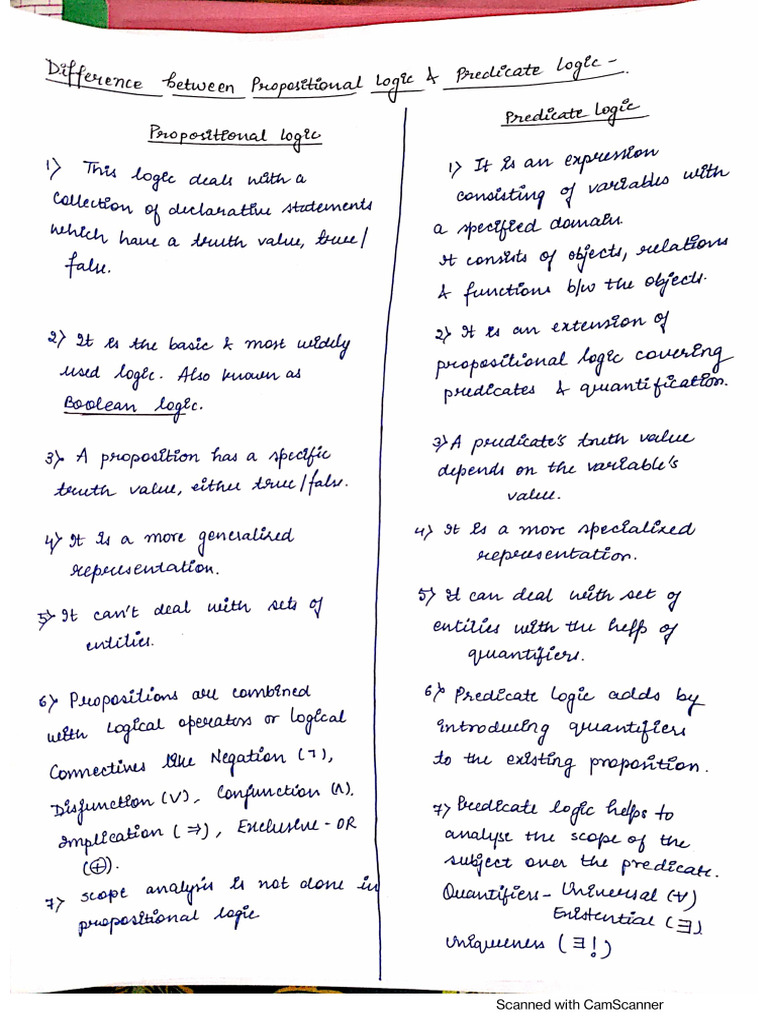 Difference between Propositional Logic & Predicate Logic -
Propositional Logic
1) This logic deals with a
collection of declarative statements
which have a truth value, true/
false.
2) It is the basic & most widely
used logic. Also known as
Boolean logic.
3) A proposition has a specific
truth value, either true/false.
4) It is a more generalized
representation.
5) It can't deal with sets of
entities.
6) Propositions are combined
with Logical operators or logical
Connectives like Negation (¬),
Disjunction (∨), Conjunction (∧),
Implication (⇒), Exclusive-OR
(⊕).
7) scope analysis is not done in
propositional logic
Predicate Logic
1) It is an expression
consisting of variables with
a specified domain.
It consists of objects, relations
& functions b/w the objects.
2) It is an extension of
propositional logic covering
predicates & quantification.
3) A predicate's truth value
depends on the variable's
value.
4) It is a more specialized
representation.
5) It can deal with set of
entities with the help of
quantifiers.
6) Predicate logic adds by
introducing quantifiers
to the existing proposition.
7) Predicate logic helps to
analyse the scope of the
subject over the predicate.
Quantifiers - Universal (∀)
Existential (∃)
Uniqueness (∃!)
Scanned with CamScanner